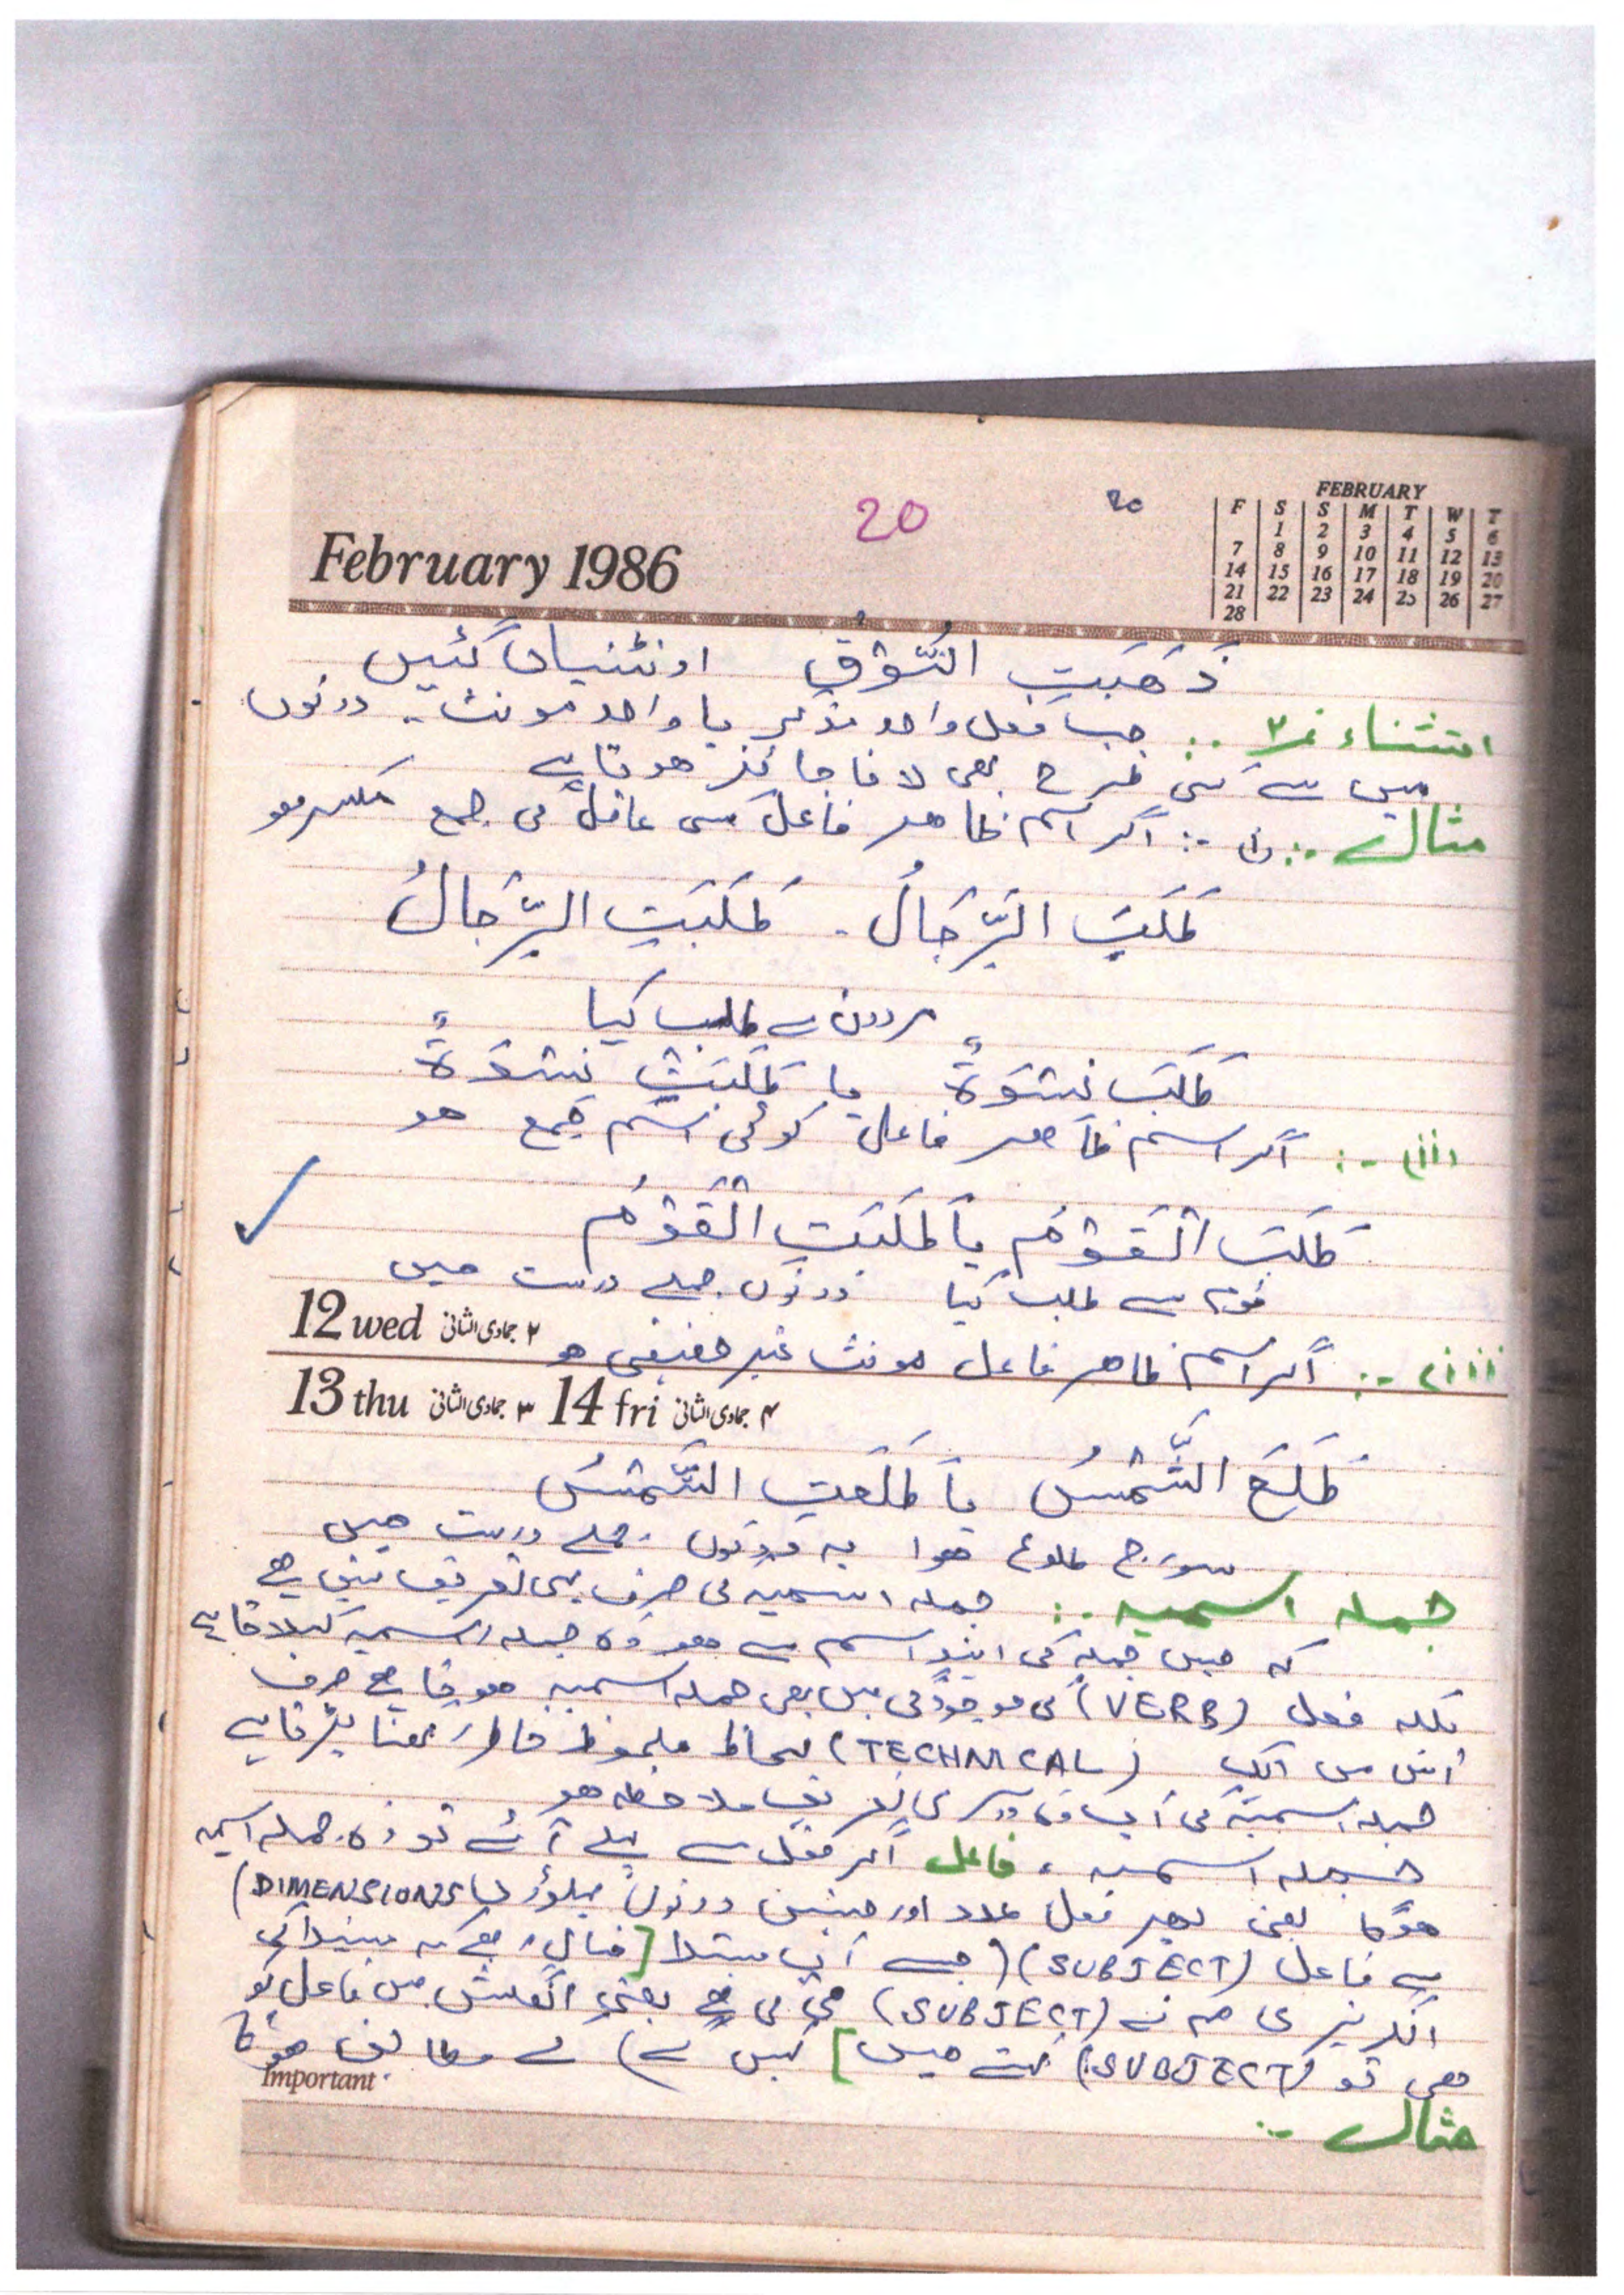 20
20
February 1986
FEBRUARY
F S S M T W T
1 2 3 4 5 6
7 8 9 10 11 12 13
14 15 16 17 18 19 20
21 22 23 24 25 26 27
28
ذَهَبَتِ النُّوْقُ اونٹنیاں گئیں
استثناء نمبر ۳ :۔ جب فعل واحد مذکر یا واحد مونث ۔ دونوں
میں سے کسی طرح بھی لانا جائز ہوتا ہے
مثال :۔ (i) :۔ اگر اسم ظاہر فاعل کسی عاقل کی جمع مکسر ہو
طَلَبَ الرِّجَالُ ۔ طَلَبَتِ الرِّجَالُ
مردوں نے طلب کیا
طَلَبَ نِسْوَةٌ یا طَلَبَتْ نِسْوَةٌ
(ii) :۔ اگر اسم ظاہر فاعل کوئی اسم جمع ہو
طَلَبَ الْقَوْمُ یا طَلَبَتِ الْقَوْمُ
قوم نے طلب کیا دونوں جملے درست ہیں
12 wed ۲ جمادی الثانی
iii) :۔ اگر اسم ظاہر فاعل مونث غیر حقیقی ہو
13 thu ۳ جمادی الثانی 14 fri ۴ جمادی الثانی
طَلَعَ الشَّمْسُ یا طَلَعَتِ الشَّمْسُ
سورج طلوع ہوا یہ دونوں جملے درست ہیں
جملہ اسمیہ :۔ جملہ اسمیہ کی صرف یہی تعریف نہیں ہے
کہ جس جملہ کی ابتدا اسم سے ہو وہ جملہ اسمیہ کہلاتا ہے
بلکہ فعل (VERB) کی موجودگی میں بھی جملہ اسمیہ ہوتا ہے صرف
اس میں ایک (TECHNICAL) لحاظ ملحوظ خاطر رکھنا پڑتا ہے
جملہ اسمیہ کی اب دوسری تعریف ملاحظہ ہو
جملہ اسمیہ ، فاعل اگر فعل سے پہلے آئے تو وہ جملہ اسمیہ
ہوگا یعنی پھر فعل عدد اور جنس دونوں پہلوؤں (DIMENSIONS)
سے فاعل (SUBJECT) (جسے آپ مبتدا [خیال رہے کہ مبتدا کی
انگریزی ہم نے (SUBJECT) ہی کی ہے یعنی انگلش میں فاعل کو
بھی تو (SUBJECT) کہتے ہیں] کہیں گے) کے مطابق ہوگا
Important
مثال :۔